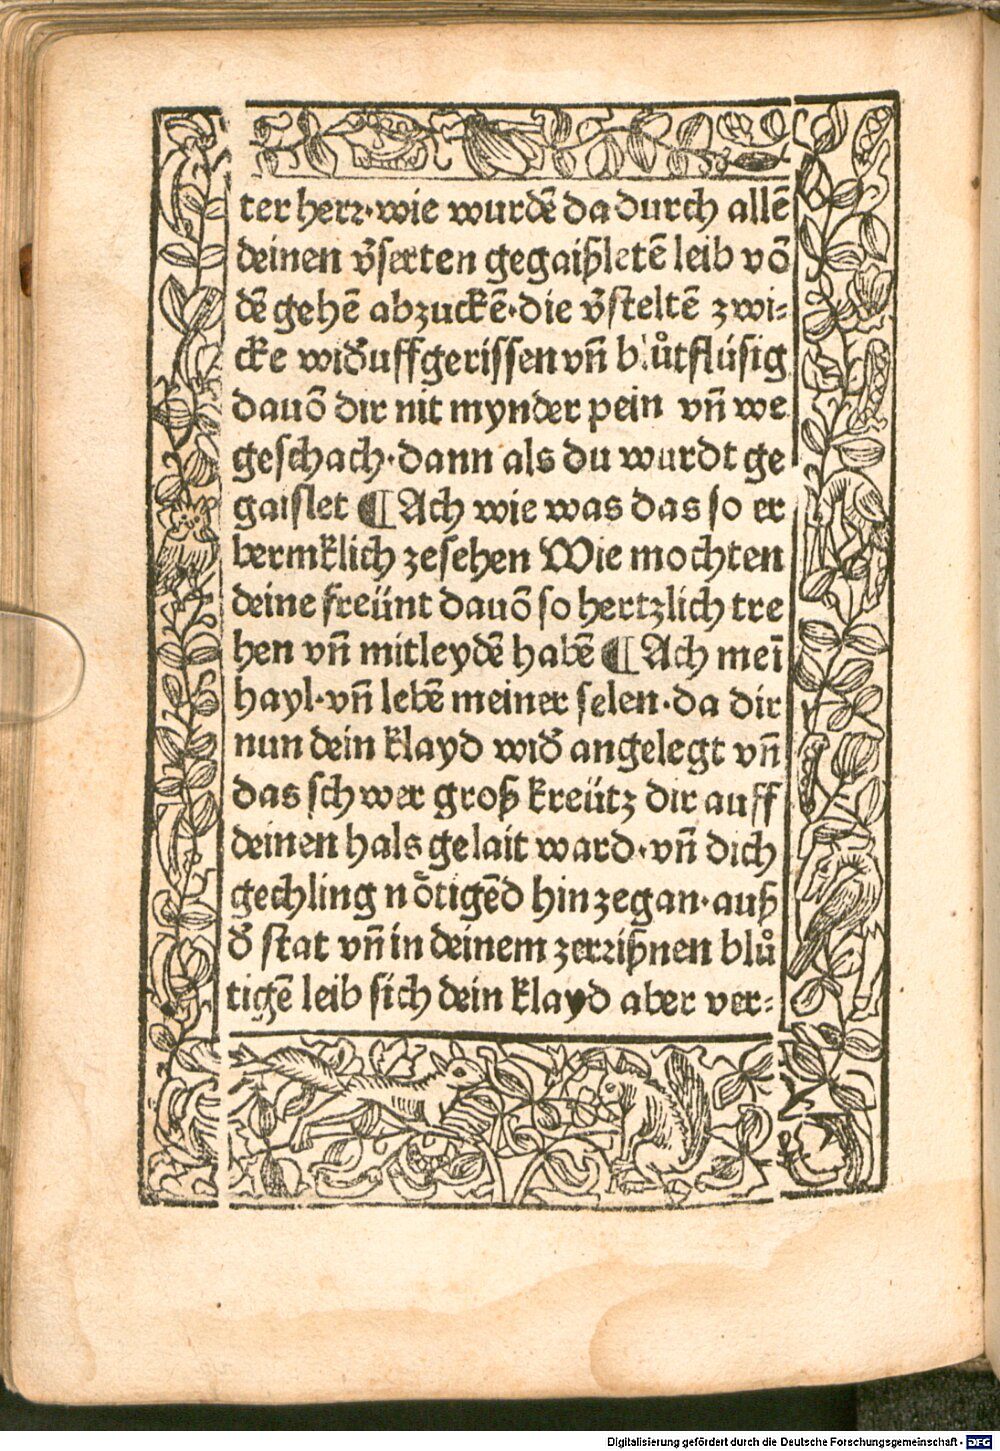 ter herr·wie wurdē da durch allē
deinen v̄serten gegaißletē leib vō
dē gehē abzuckē·die v̄steltē zwi⸗
cke wid̄ uffgerissen vn̄ blůtflúsig
dauō dir nit mynder pein vn̄ we
geschach·dann als du wurdt ge
gaislet ¶ Ach wie was das so er
bermklich zesehen Wie mochten
deine freünt dauō so hertzlich tre
hen vn̄ mitleydē habē ¶ Ach meī
hayl·vn̄ lebē meiner selen·da dir
nun dein klayd wid̄ angelegt vn̄
das schwer groß kreütz dir auff
deinen hals gelait ward·vn̄ dich
gechling nötigēd hin zegan·auß
d̄ stat vn̄ in deinem zerrißnen blů
tigē leib sich dein klayd aber ver⸗
Digitalisierung gefördert durch die Deutsche Forschungsgemeinschaft - DFG